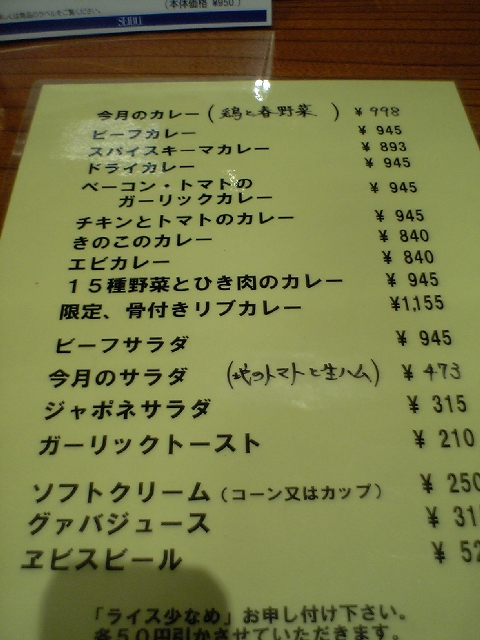 くは商品のラベルをご覧ください。
(本体価格 ¥950)
SEIBU
今月のカレー (鶏と春野菜) ¥998
ビーフカレー ¥ 945
スパイスキーマカレー ¥ 893
ドライカレー ¥ 945
ベーコン・トマトの
ガーリックカレー ¥ 945
チキンとトマトのカレー ¥ 945
きのこのカレー ¥ 840
エビカレー ¥ 840
15種野菜とひき肉のカレー ¥ 945
限定、骨付きリブカレー ¥1,155
ビーフサラダ ¥ 945
今月のサラダ (トマトと生ハム) ¥ 473
ジャポネサラダ ¥ 315
ガーリックトースト ¥ 210
ソフトクリーム (コーン又はカップ) ¥ 250
グァバジュース ¥ 31
ヱビスビール ¥ 52
「ライス少なめ」お申し付け下さい。
各50円引かさせていただきます。